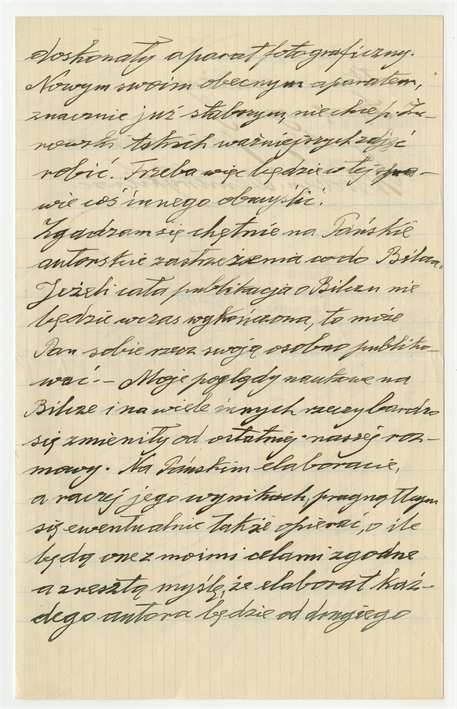 doskonały aparat fotograficzny.
Nowym swoim obecnym aparatem,
znacznie już słabszym, nie chce p. Żu-
rowski takich ważniejszych zdjęć
robić. Trzeba więc będzie w tej spra-
wie coś innego obmyślić.
Zgadzam się chętnie na Pańskie
autorskie zastrzeżenia co do Bilcza.
Jeżeli cała publikacja o Bilczu nie
będzie wczas wykończona, to może
Pan sobie rzecz swoją osobno publiko-
wać. – Moje poglądy naukowe na
Bilcze i na wiele innych rzeczy bardzo
się zmieniły od ostatniej naszej roz-
mowy. Na Pańskim elaboracie,
a raczej jego wynikach, pragnąłbym
się ewentualnie także opierać, o ile
będą one z moimi celami zgodne
a zresztą myślę, że elaborat każ-
dego autora będzie od drugiego